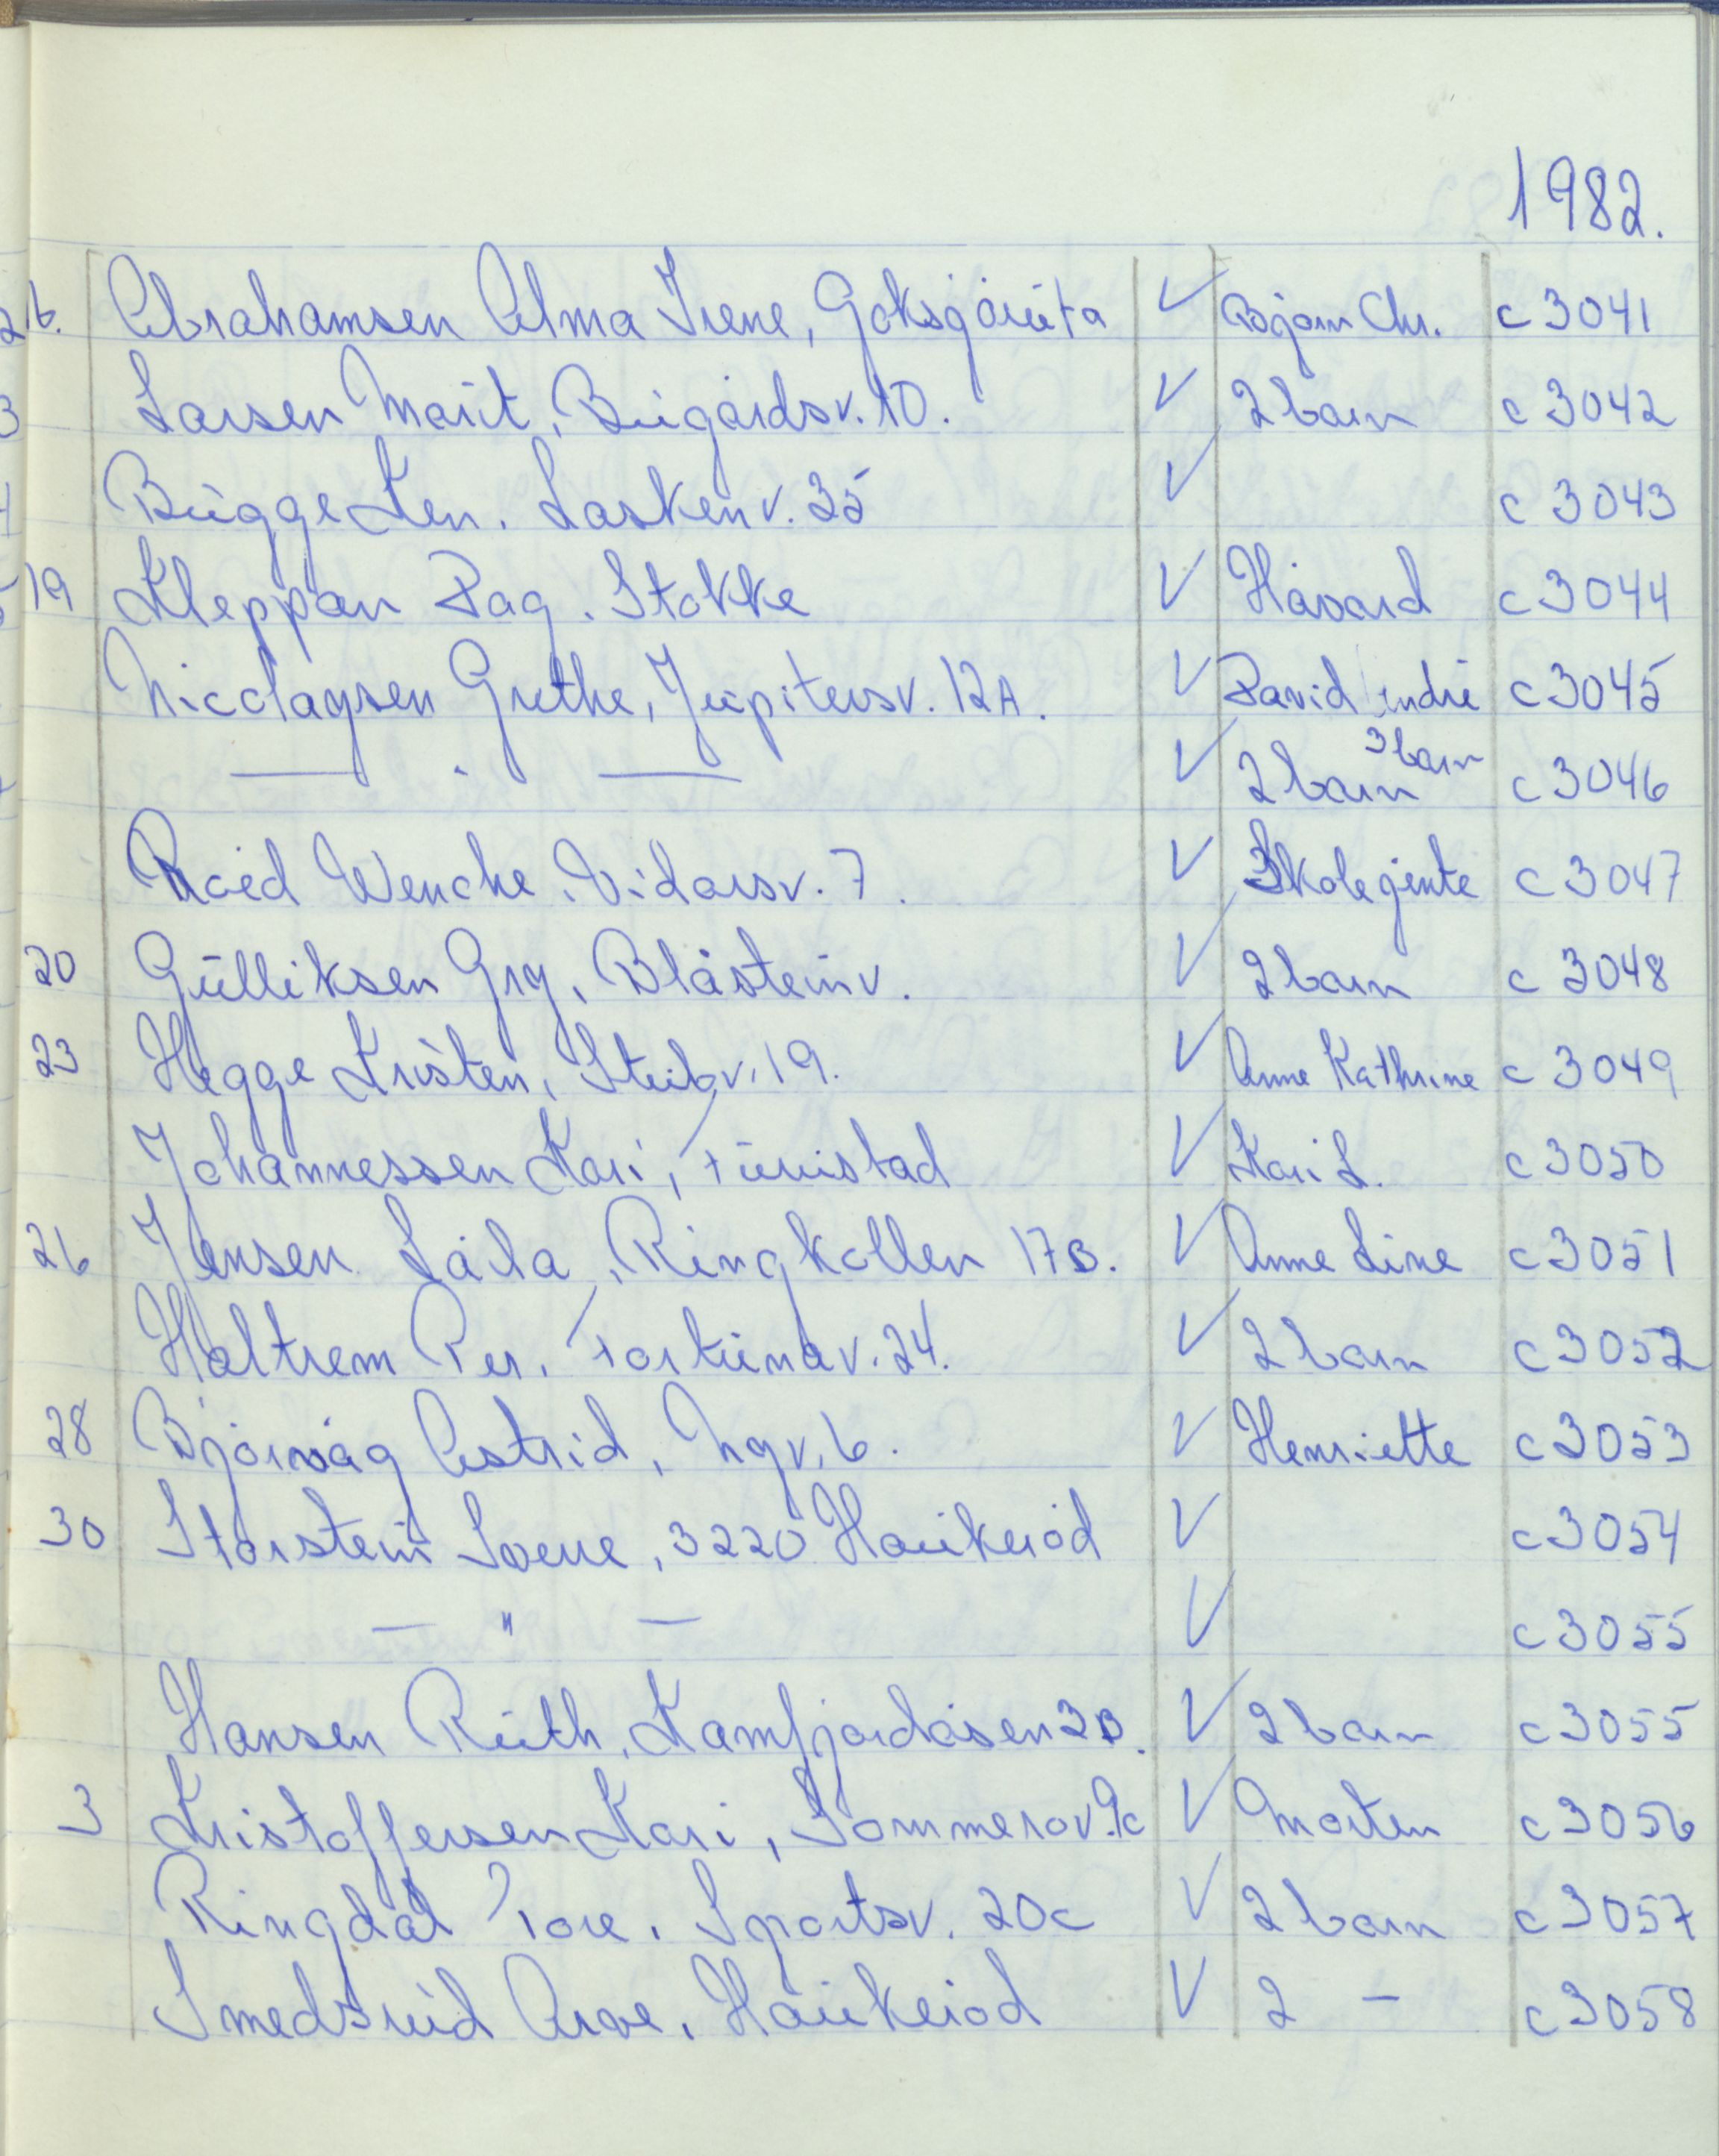 1982.
16. Abrahamsen Alma Irene, Goksjøruta ✓ Bjørn Chr. c 3041
Larsen Marit, Bugårdsv. 10. ✓ 2 barn c 3042
Bugge Ken. Laskenv. 35 ✓ c 3043
19 Kleppan Dag. Stokke ✓ Håvard c 3044
Nicolaysen Grethe, Jupitersv. 12A. ✓ David Endre c 3045
— " — ✓ 2 barn 3 barn c 3046
Roed Wenche. Vidarsv. 7. ✓ Skolejente c 3047
20 Gulliksen Gry, Blåsteinv. ✓ 2 barn c 3048
23 Hegge Kristen, v. 19. ✓ Anne Kathrine c 3049
Johannessen Kari, Furustad ✓ Kari L. c 3050
26 Jensen Laila, Ringkollen 17B. ✓ Anne Line c 3051
Holtrem Per. Fortunav. 24. ✓ 2 barn c 3052
28 Bjørvåg Astrid, Nyv. 6. ✓ Henriette c 3053
30 Storstein Sverre, 3220 Haukerød ✓ c 3054
— " — ✓ c 3055
Hansen Ruth, Kamfjordåsen 2B. ✓ 2 barn c 3055
3 Kristoffersen Kari, Sommerov. 9c ✓ Morten c 3056
Ringdal Tore. Sportsv. 20c ✓ 2 barn c 3057
Smedsrud Arve. Haukerød ✓ 2 — c 3058